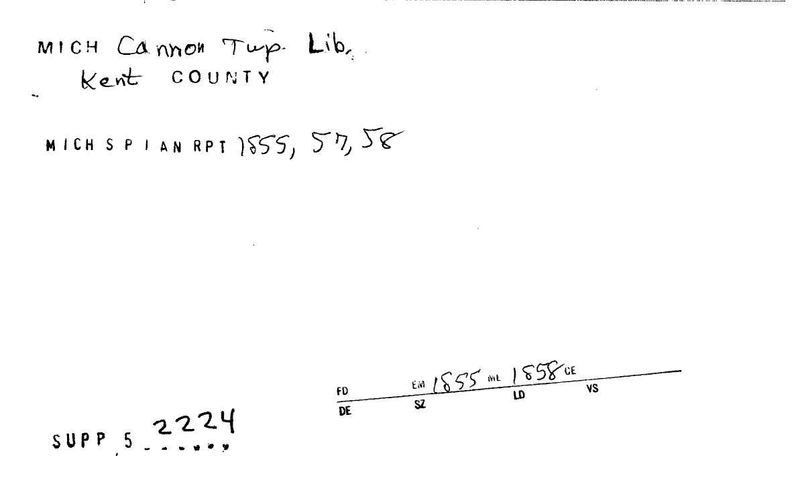 MICH Cannon Twp. Lib.
Kent COUNTY
MICH S P I AN RPT 1855, 57, 58
FD EM 1855 ML 1858 CE
DE SZ LD VS
SUPP 5 2224